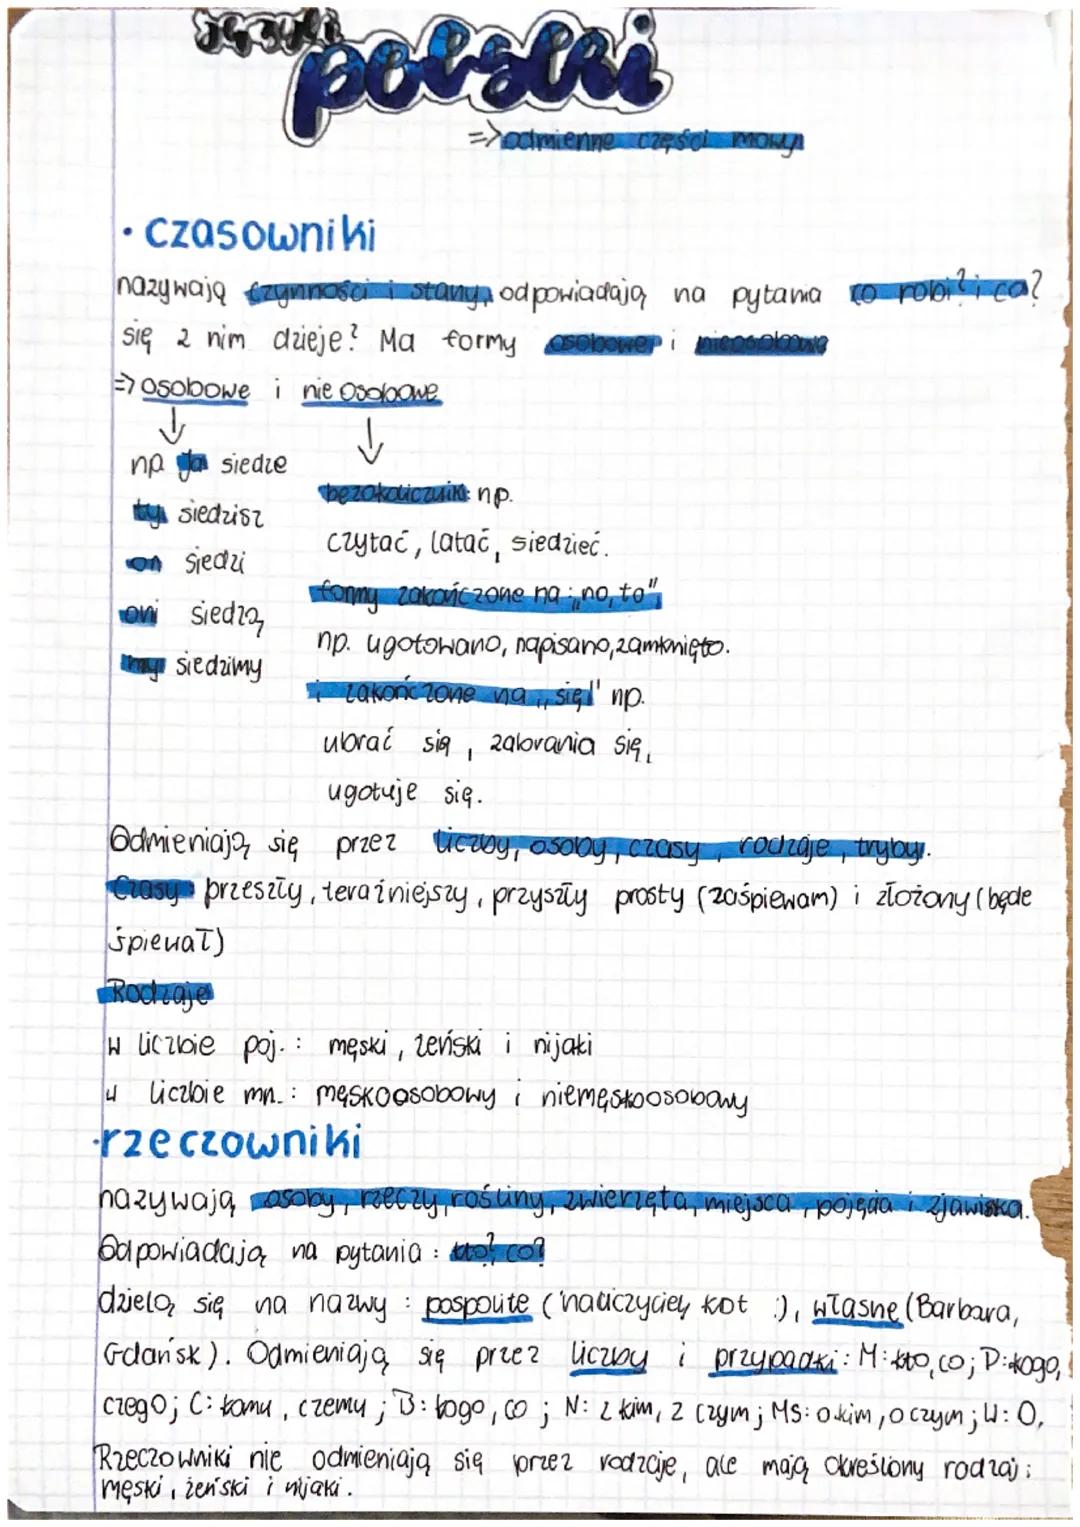 język
polski
=> odmienne części mowy
· czasowniki
nazywają czynności i stany, odpowiadają na pytania co robi? i co?
się z nim dzieje? Ma formy osobowe i nieosobowe
=> osobowe i nie osobowe
np. Ja siedze
ty siedzisz
on siedzi
oni siedzą
my siedzimy
bezokoliczniki: np.
czytać, latać, siedzieć.
formy zakończone na: „no, to",
np. ugotowano, napisano, zamknięto.
i zakończone na „się" np.
ubrać się, zabrania się,
ugotuje się.
Odmieniają się przez liczby, osoby, czasy, rodzaje, tryby.
Czasy: przeszły, teraźniejszy, przyszły prosty (zaśpiewam) i złożony (będe
śpiewał)
Rodzaje
w liczbie poj.: męski, żeński i nijaki
w liczbie mn.: męskoosobowy i niemęskoosobowy
·rzeczowniki
nazywają osoby, rzeczy, rośliny, zwierzęta, miejsca, pojęcia i zjawiska.
Odpowiadają na pytania: kto? co?
dzielą się na nazwy: pospolite (nauczyciel, kot :), własne (Barbara,
Gdańsk). Odmieniają się przez liczby i przypadki: M: kto, co; D: kogo,
czego; C: komu, czemu; B: kogo, co; N: z kim, z czym; MS: o kim, o czym; W: O,
Rzeczowniki nie odmieniają się przez rodzaje, ale mają określony rodzaj:
męski, żeński i nijaki.